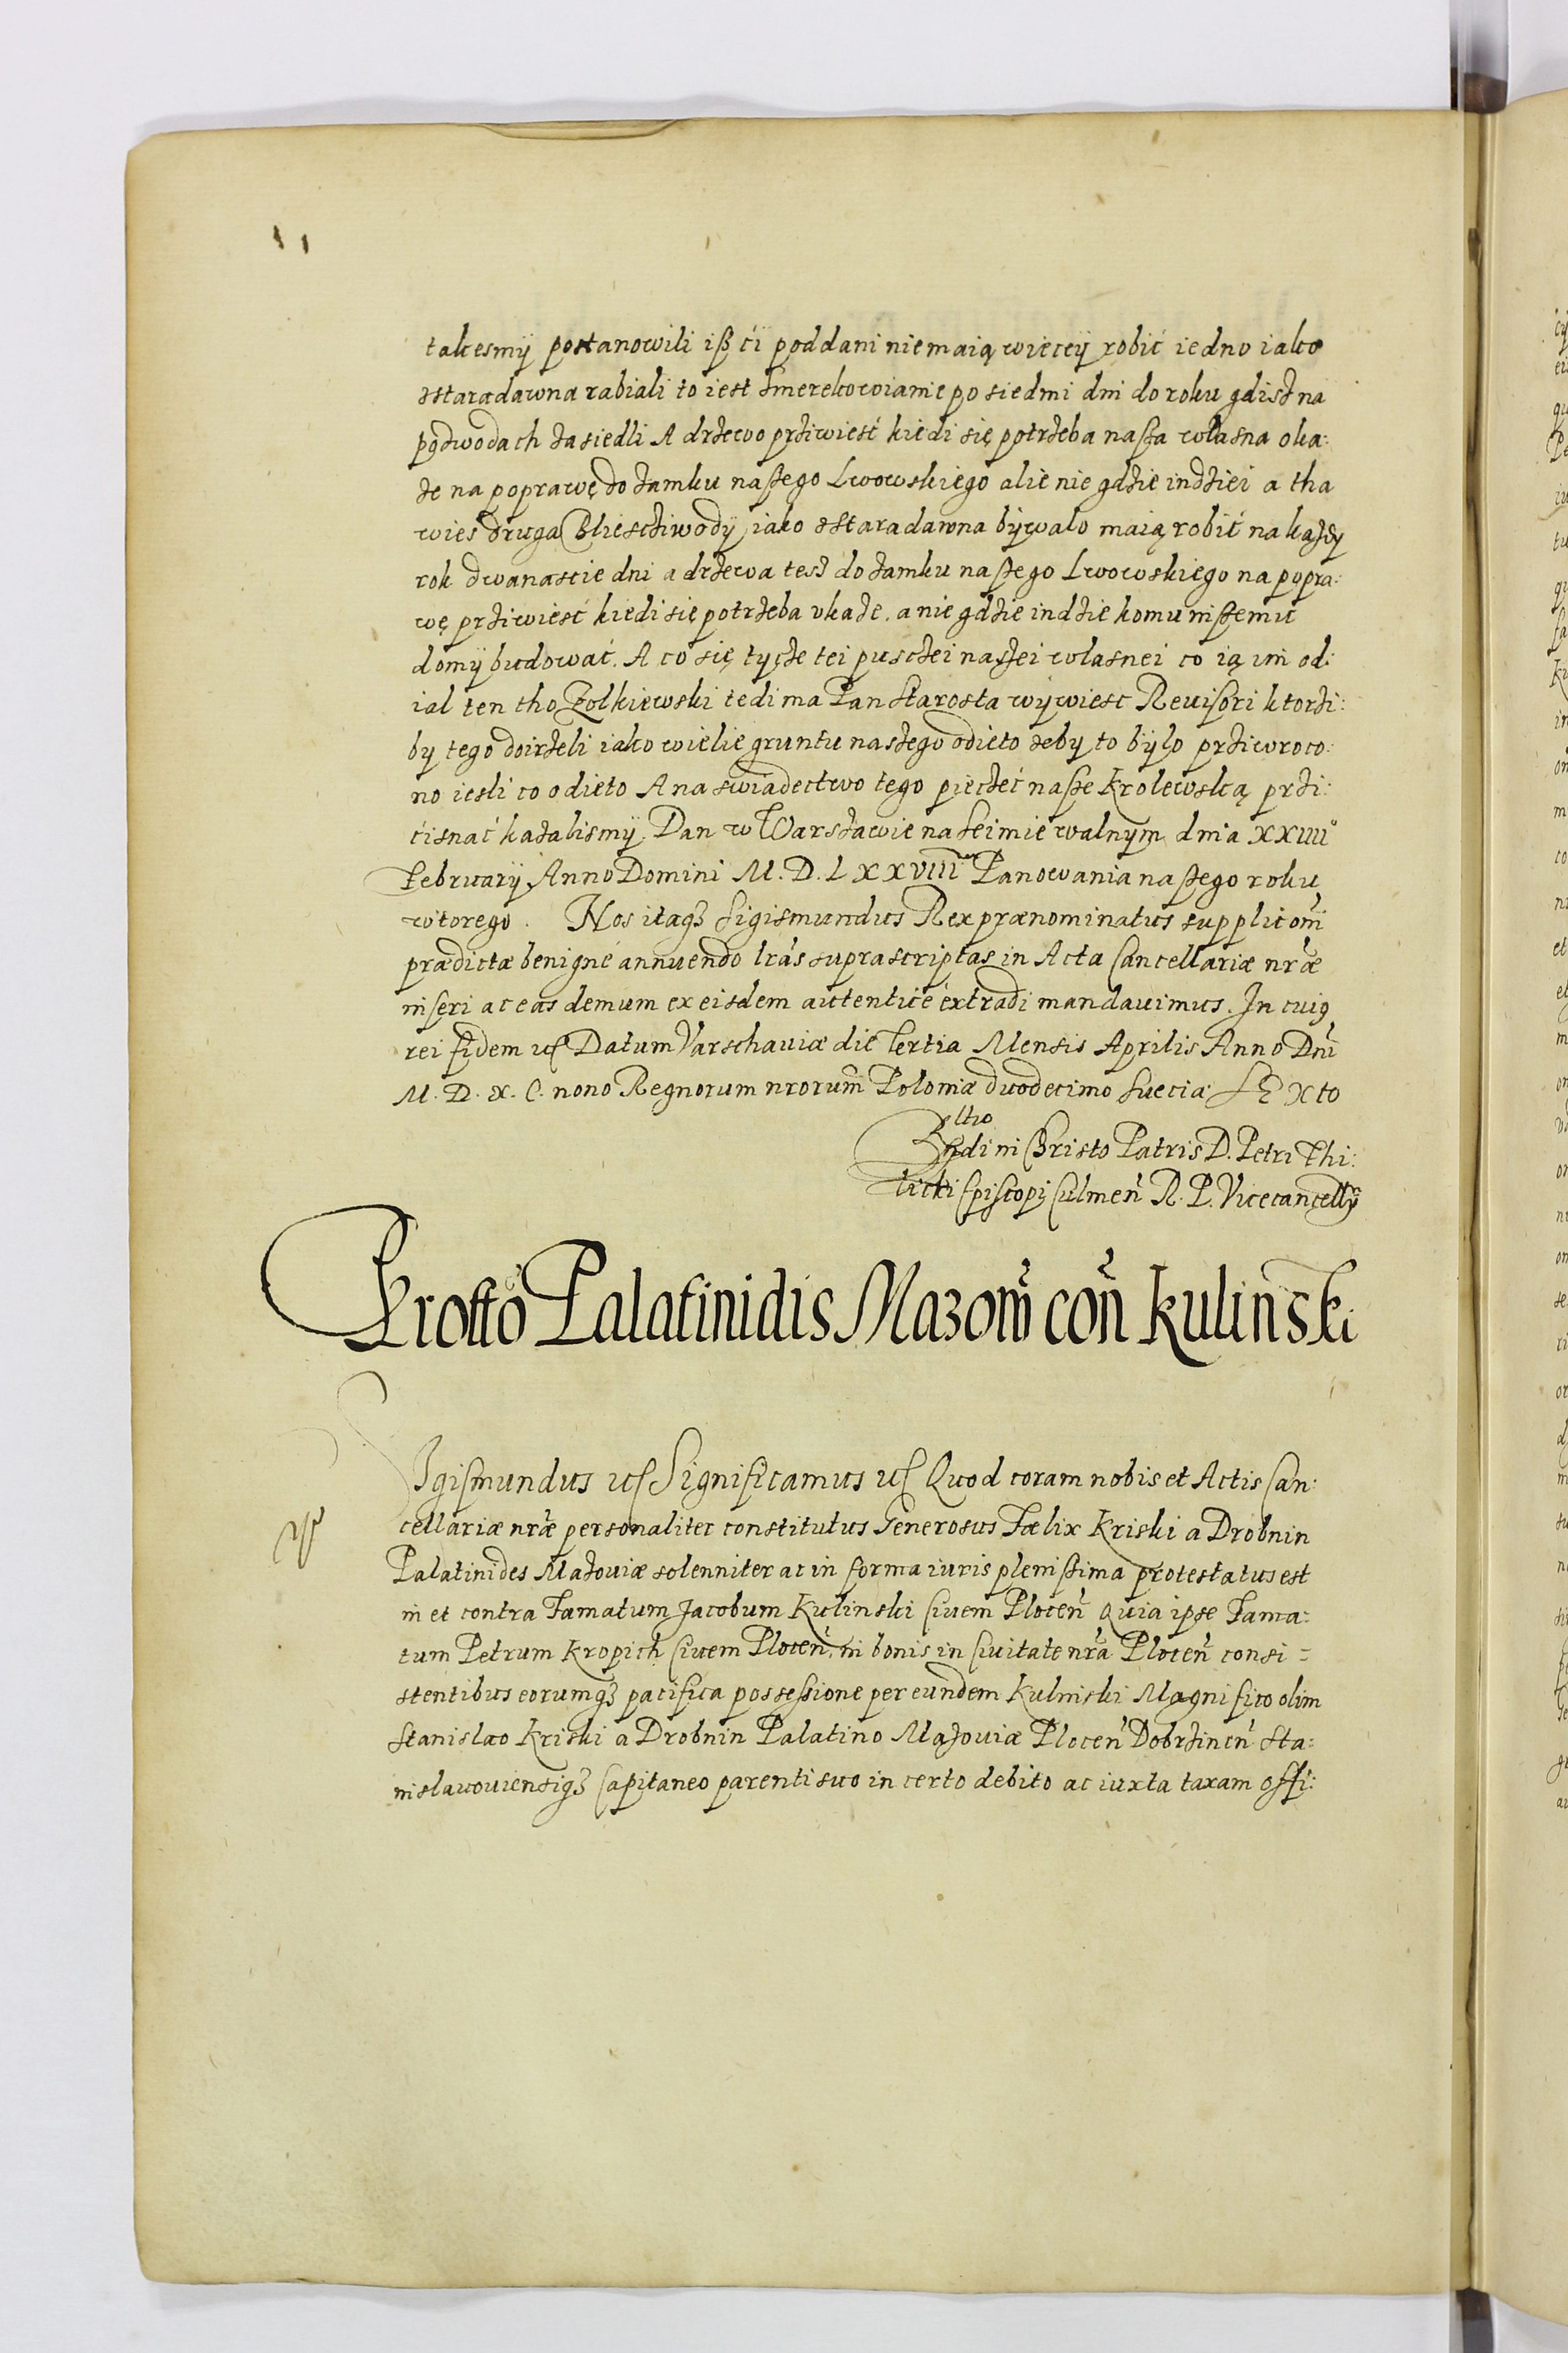 takesmÿ postanowili iß ći poddani nie maią wiecey robić iedno iako
zstaradawna rabiali to iest Smerekowianie po siedmi dni do roku gdisz na
podwodach zasiedli A drzewo prziwieść kiedi się potrzeba nasza własna oka:
ze na poprawę do zamku naszego Lwowskiego alie nie gdzie indziei a tha
wieś druga Bliesczÿwodÿ iako zstaradawna bÿwalo maią robić na każdy
rok dwanascie dni a drzewa tesz do zamku naszego Lwowskiego na popra:
wę prziwieść kiedi się potrzeba vkaze. a nie gdzie indzie komu inszemu
domÿ budować. A co się tÿcze tei pusczei naszei wlasnei co ią im od:
ial ten tho Zolkiewski tedi ma Pan Starosta wÿwiesc Reuisori ktorzi:
by tego doirzeli iako wielie gruntu naszego odieto zeby to bÿlo prziwroco:
no iesli co odieto A na swiadectwo tego pieczęć nasze Krolewską przi:
cisnać kazalismÿ. Dan w Warszawie na Seimie walnÿm dnia XXIIII°
Februarÿ Anno Domini M. D. LXXVIII Panowania naszego roku
wtorego. Nos itaqꝫ Sigismundus Rex prænominatus suppliconi
prædictæ benigne annuendo lras suprascriptas in Acta Cancellariæ nræ
inseri ac eas demum ex eisdem autentice extradi mandauimus. In cuiꝰ
rei fidem ꝛc Datum Varschauiæ die Tertia Mensis Aprilis Anno Dni
M. D. X. C. nono Regnorum nrorum Poloniæ duodecimo Sueciæ SEXto
Rltio
Rndi in Christo Patris D. Petri Thi:
licki Episcopi Culmen R. P. Vicecancellÿ
Protto Palatinidis Mazom con Kulinski
SIgismundus ꝛc Significamus ꝛc Quod coram nobis et Actis Can:
cellariæ nræ personaliter constitutus Generosus Fælix Kriski a Drobnin
Palatinides Mazouiæ solenniter ac in forma iuris plenissima protestatus est
in et contra Famatum Jacobum Kulinski Ciuem Plocen Quia ipse Fama:
tum Petrum Kropich Ciuem Plocen, in bonis in Ciuitate nra Plocen consi=
stentibus eorumqꝫ pacifica possessione per eundem Kulinski Magnifico olim
Stanislao Kriski a Drobnin Palatino Mazouiæ Plocen Dobrzinen Sta:
nislauouiensiqꝫ Capitaneo parenti suo in certo debito ac iuxta taxam offi: